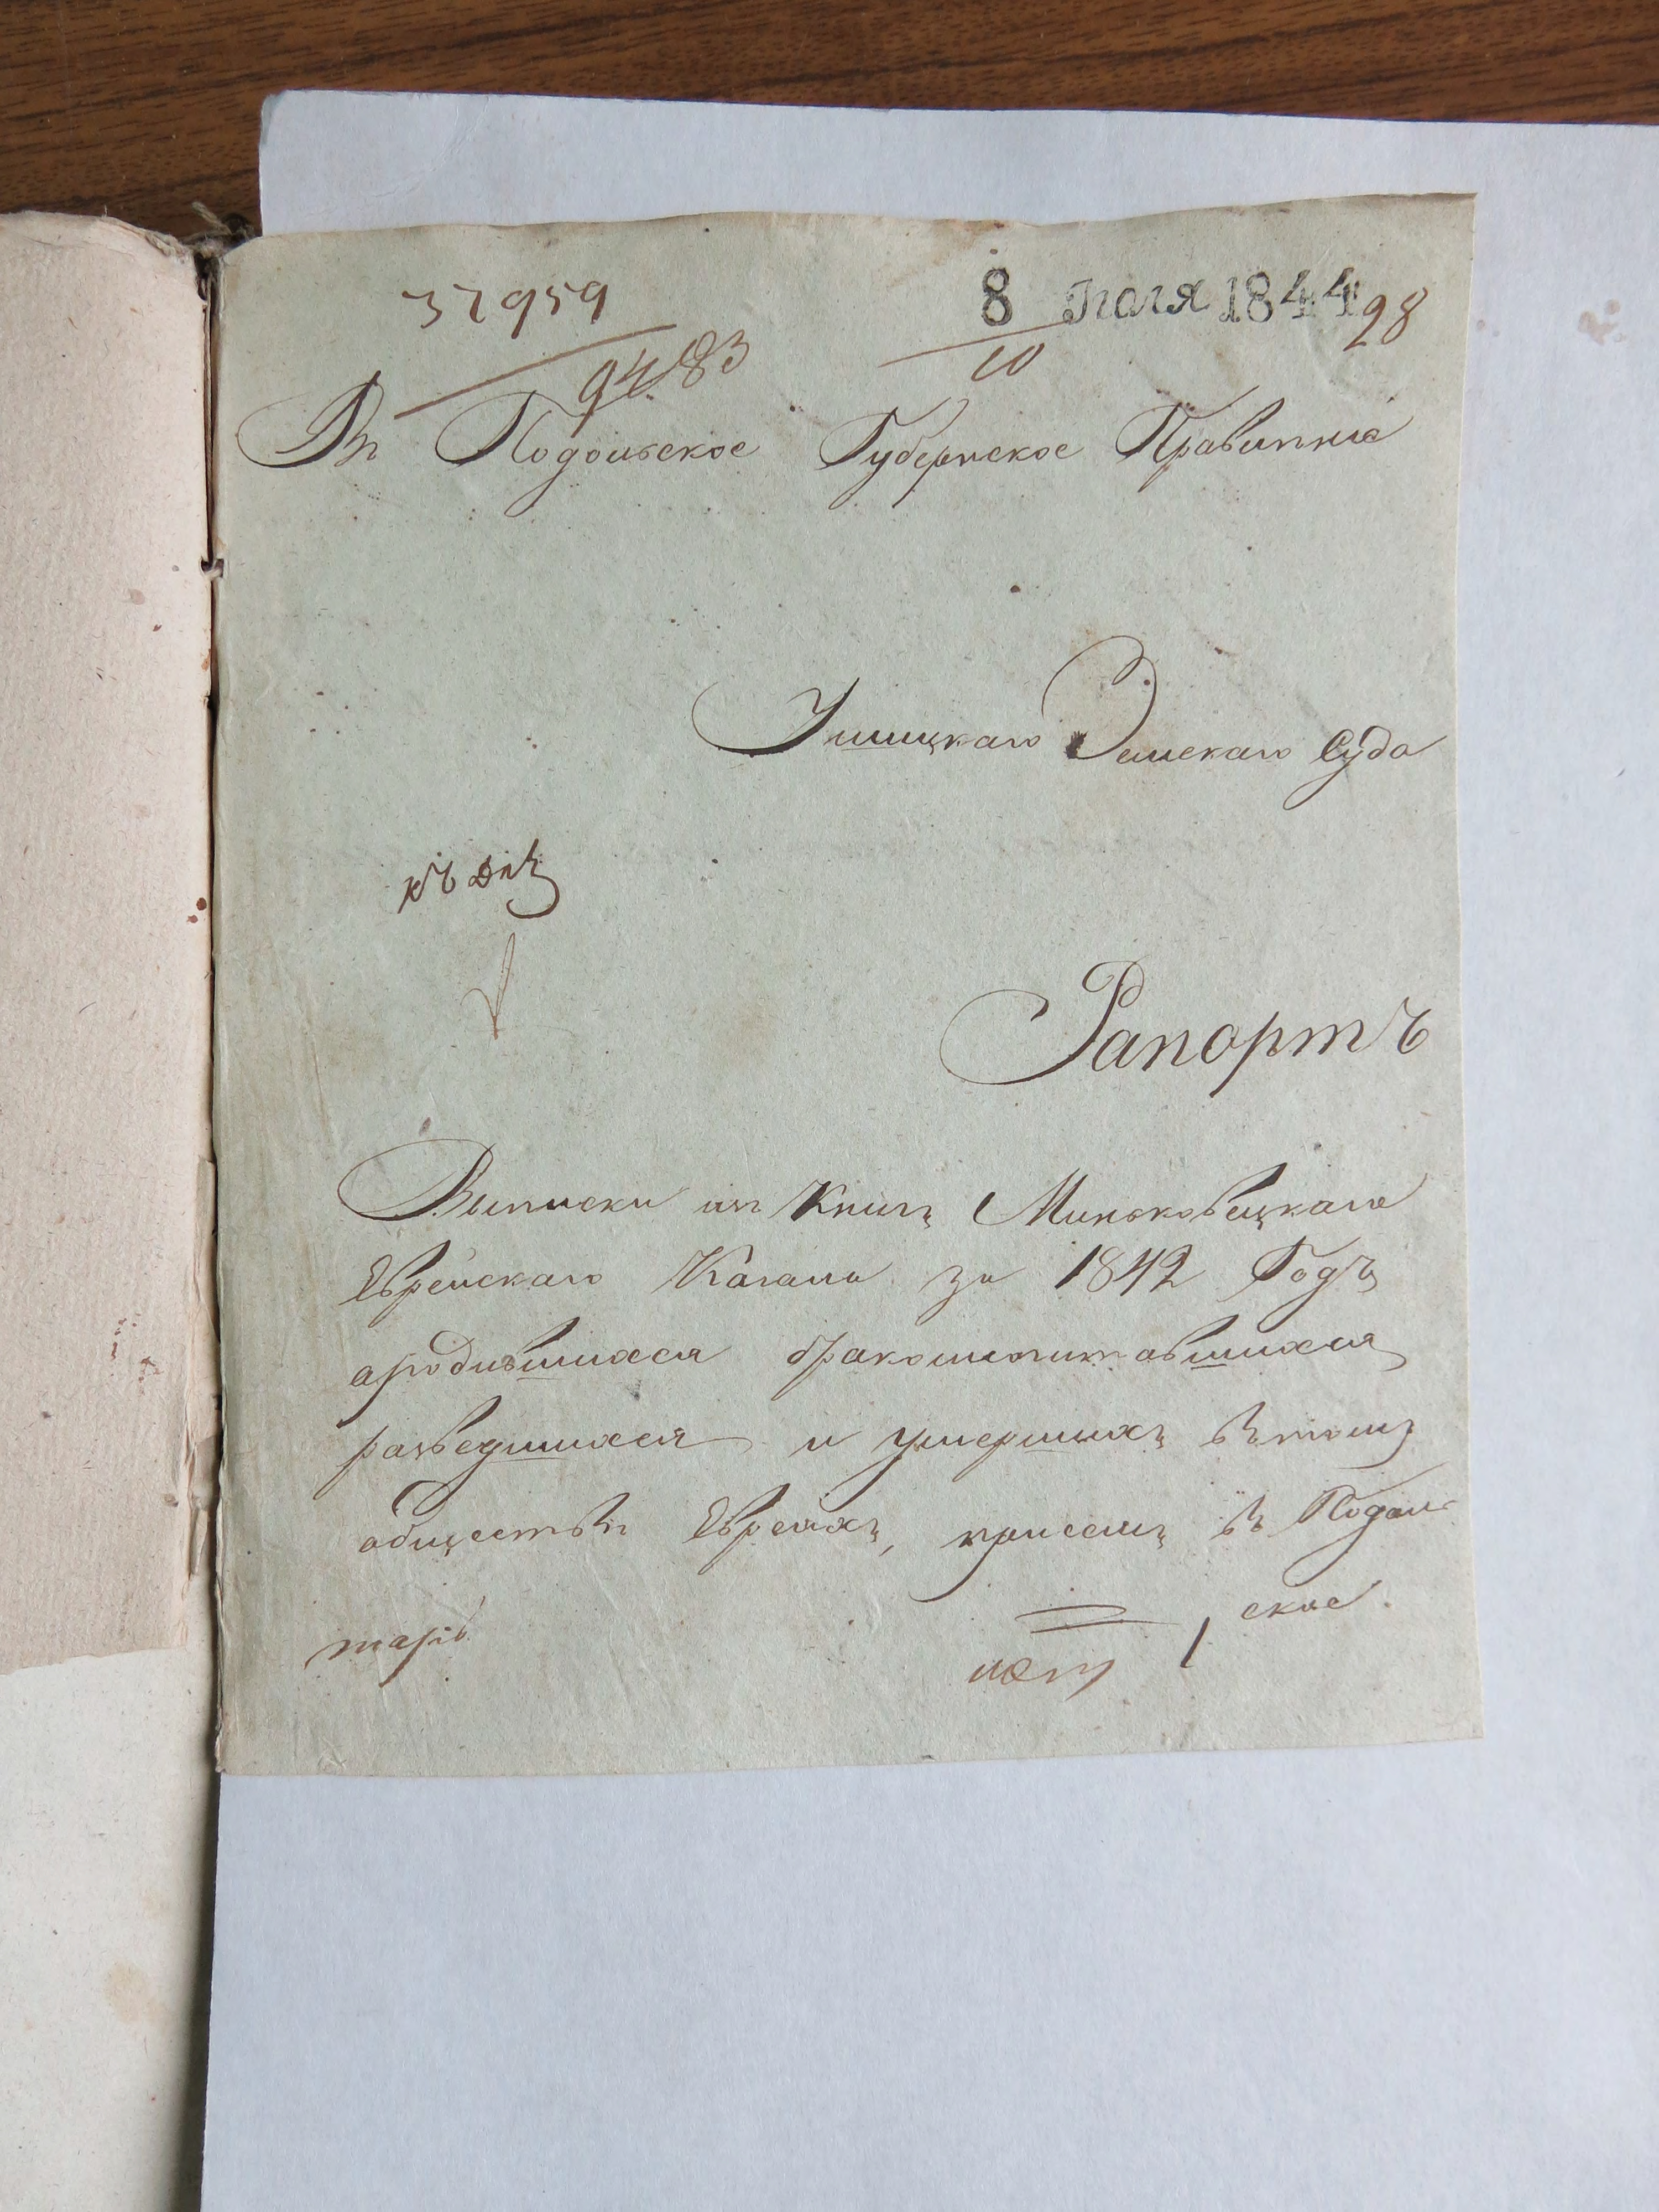 37959
8 Июля 1844
28
9483
10
Въ Подольское Губернское Правленіе
Ушицкаго Земскаго Суда
къ дѣлу
Рапортъ
Выписки изъ Книгъ Миньковецкаго
Еврейскаго Кагала за 1842 Годъ
ародившихся бракосочитавшихся
разведшихся и умершихъ вътомъ
обществѣ Евреяхъ, при семъ въ Подоль
ское